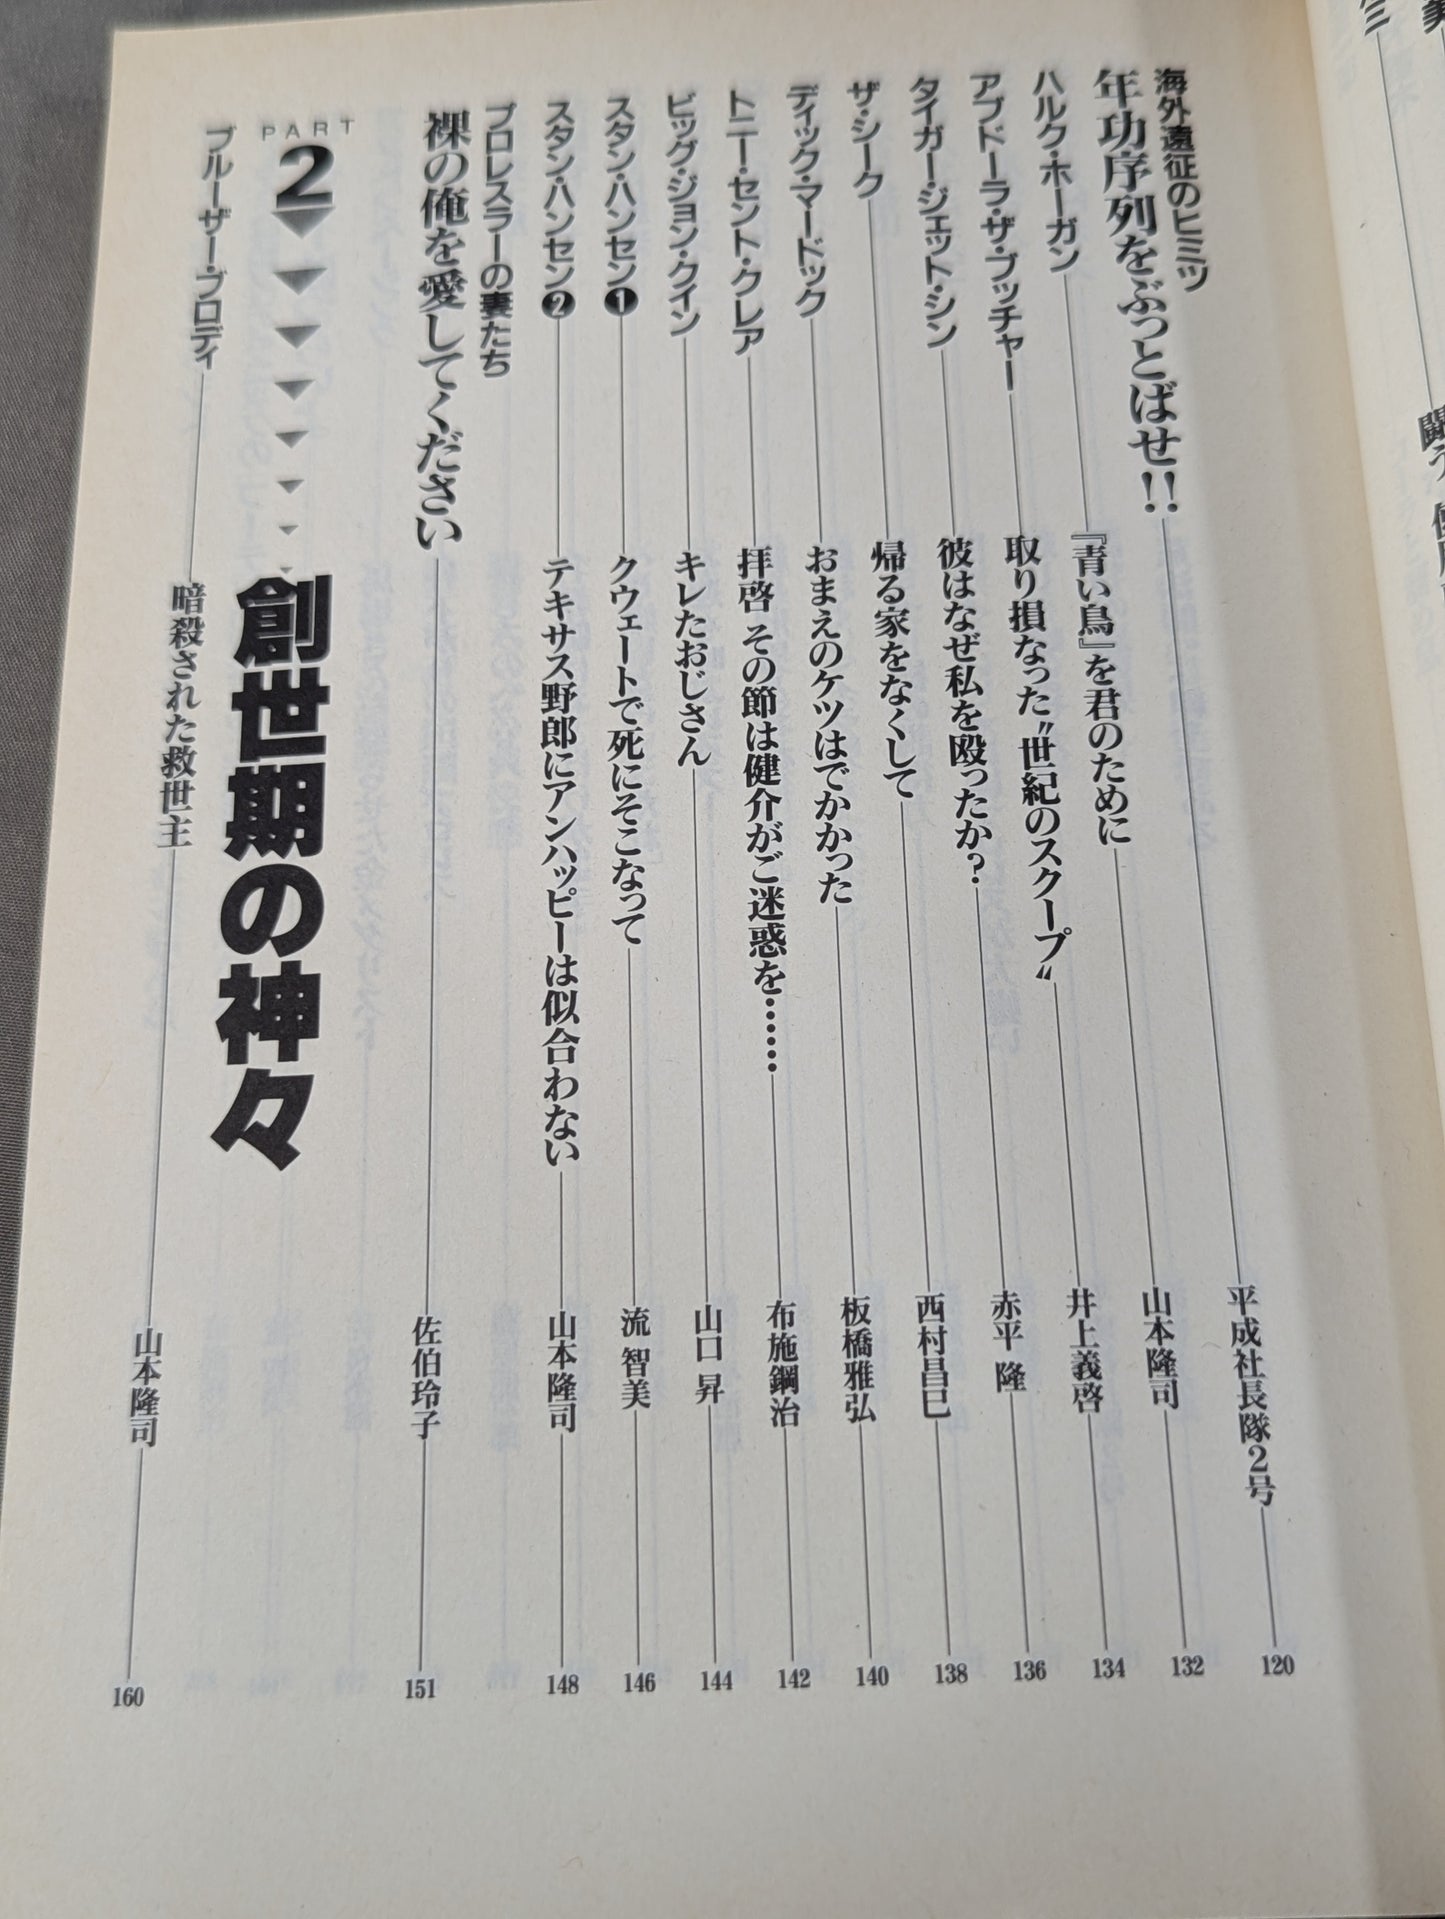 海外遠征のヒミツ
年功序列をぶっとばせ!!
平成社長隊2号
120
ハルク・ホーガン
『青い鳥』を君のために
山本隆司
132
アブドーラ・ザ・ブッチャー
取り損なった〝世紀のスクープ〟
井上義啓
134
タイガー・ジェット・シン
彼はなぜ私を殴ったか?
赤平 隆
136
ザ・シーク
帰る家をなくして
西村昌巳
138
ディック・マードック
おまえのケツはでかかった
板橋雅弘
140
トニー・セント・クレア
拝啓 その節は健介がご迷惑を……
布施鋼治
142
ビッグ・ジョン・クイン
キレたおじさん
山口 昇
144
スタン・ハンセン❶
クウェートで死にそこなって
流 智美
146
スタン・ハンセン❷
テキサス野郎にアンハッピーは似合わない
山本隆司
148
プロレスラーの妻たち
裸の俺を愛してください
佐伯玲子
151
PART
2
創世期の神々
ブルーザー・ブロディ
暗殺された救世主
山本隆司
160